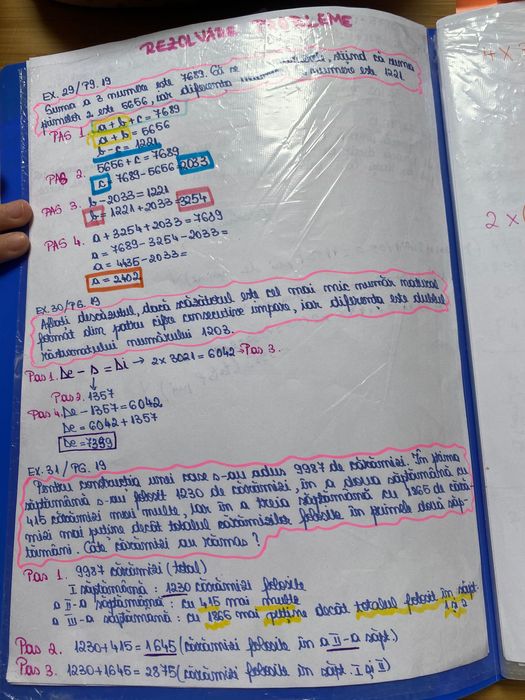 REZOLVARE PROBLEME
EX. 29/PG. 19
Suma a 3 numere este 7689. Să se numerele, știind că suma
primelor 2 este 5656, iar diferența numere este 1221
PAS 1. a + b + c = 7689
a + b = 5656
b - c = 1221
PAS 2. 5656 + c = 7689
c = 7689 - 5656 = 2033
PAS 3. b - 2033 = 1221
b = 1221 + 2033 = 3254
PAS 4. a + 3254 + 2033 = 7689
a = 7689 - 3254 - 2033 =
a = 4435 - 2033 =
a = 2402
EX. 30/PG. 19
Aflați descăzutul, dacă scăzătorul este cel mai mic număr natural
format din patru cifre consecutive impare, iar diferența este dublul
răsturnatului numărului 1203.
Pas 1. De - S = Di → 2 x 3021 = 6042 → Pas 3.
↓
Pas 2. 1357
Pas 4. De - 1357 = 6042
De = 6042 + 1357
De = 7399
EX. 31/PG. 19
Pentru construcția unei case s-au adus 9987 de cărămizi. În prima
săptămână s-au folosit 1230 de cărămizi, în a doua săptămână cu
415 cărămizi mai multe, iar în a treia săptămână cu 1365 de cără-
mizi mai puține decât totalul cărămizilor folosite în primele două săp-
tămâni. Câte cărămizi au rămas?
Pas 1. 9987 cărămizi (total)
I săptămână: 1230 cărămizi folosite
a II-a săptămână: cu 415 mai multe
a III-a săptămână: cu 1365 mai puține decât totalul folosit în săpt.
1 și 2
Pas 2. 1230 + 415 = 1645 (cărămizi folosite în a II-a săpt)
Pas 3. 1230 + 1645 = 2875 (cărămizi folosite în săpt. I și II)
4 x
2 x